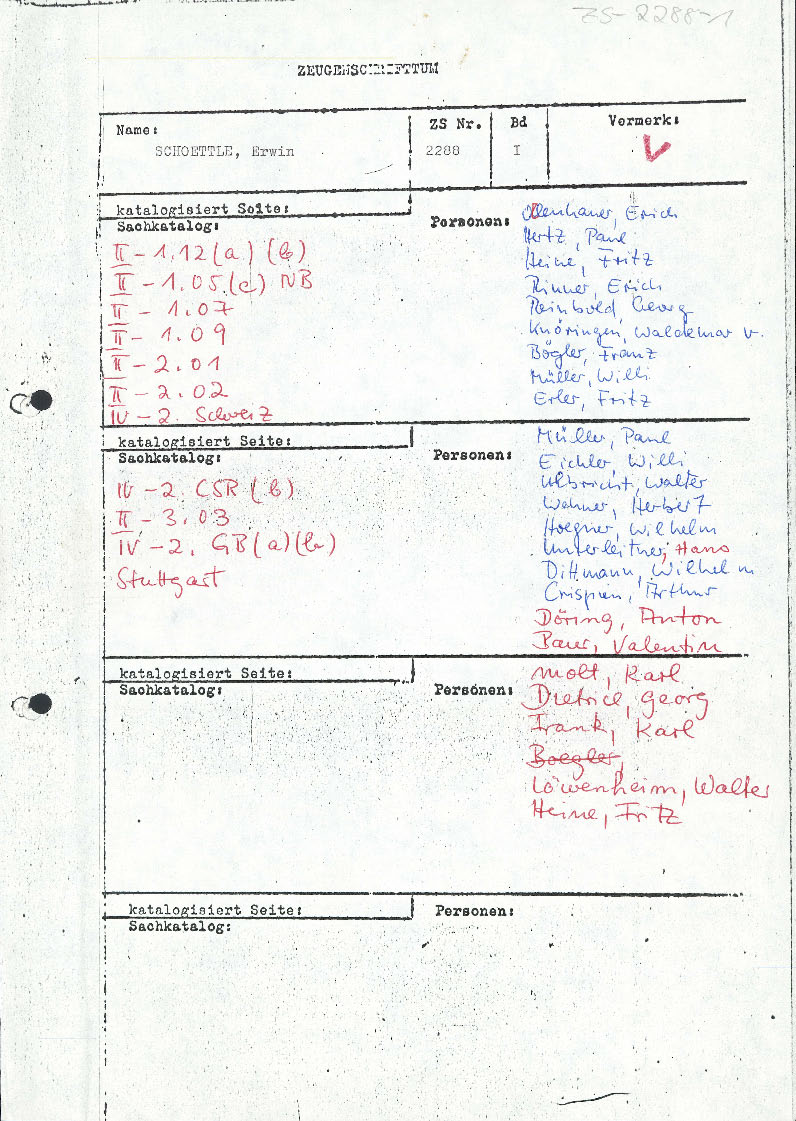 ZS-2288-1
ZEUGENSCHRIFTTUM
Name:
SCHOETTLE, Erwin
ZS Nr.
2288
Bd
I
Vermerk:
V
katalogisiert Seite:
Sachkatalog:
II - 1.12 (a) (b)
II - 1.05.(c) NB
II - 1.07
II - 1.09
II - 2.01
II - 2.02
IV - 2. Schweiz
Personen:
Ollenhauer, Erich
Hertz, Paul
Heine, Fritz
Rinner, Erich
Reinbold, Georg
Knöringen, Waldemar v.
Bögler, Franz
Müller, Willi
Erler, Fritz
katalogisiert Seite:
Sachkatalog:
IV - 2. CSR (b)
II - 3.03
IV - 2. GB (a) (b)
Stuttgart
Personen:
Müller, Paul
Eichler, Willi
Ulbricht, Walter
Wehner, Herbert
Hoegner, Wilhelm
Unterleitner, Hans
Dittmann, Wilhelm
Crispien, Arthur
Döring, Anton
Baur, Valentin
katalogisiert Seite:
Sachkatalog:
Personen:
Molt, Karl
Dietrich, Georg
Frank, Karl
Boegler,
Löwenheim, Walter
Heine, Fritz
katalogisiert Seite:
Sachkatalog:
Personen: